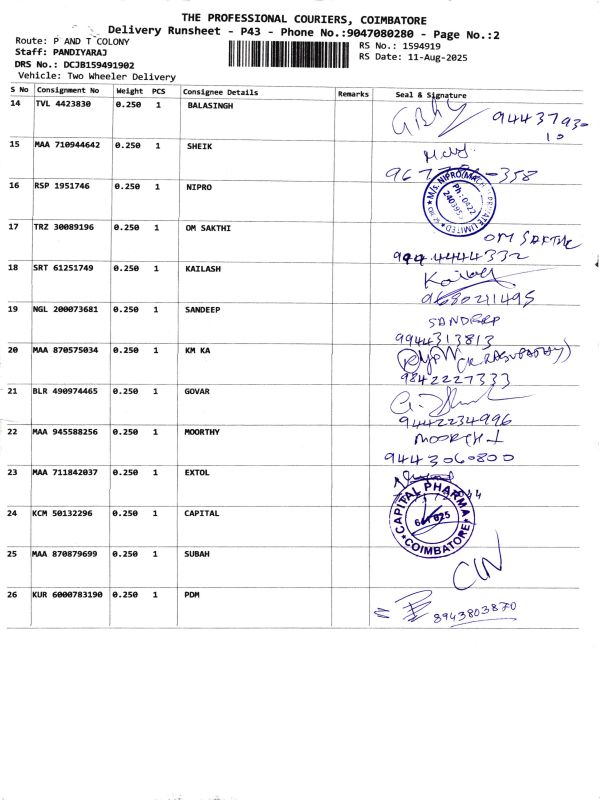 THE PROFESSIONAL COURIERS, COIMBATORE
Delivery Runsheet - P43 - Phone No.:9047080280 - Page No.:2
Route: P AND T COLONY
RS No.: 1594919
Staff: PANDIYARAJ
RS Date: 11-Aug-2025
DRS No.: DCJB159491902
Vehicle: Two Wheeler Delivery
S No Consignment No Weight PCS Consignee Details Remarks Seal & Signature
14 TVL 4423830 0.250 1 BALASINGH
94437930
10
15 MAA 710944642 0.250 1 SHEIK
358
16 RSP 1951746 0.250 1 NIPRO
M/S. NIPRO PRIVATE LIMITED
Ph: 0422
17 TRZ 30089196 0.250 1 OM SAKTHI
OM SAKTHI
4444332
18 SRT 61251749 0.250 1 KAILASH
Kailash
9630211495
19 NGL 200073681 0.250 1 SANDEEP
SANDEEP
9944313813
20 MAA 870575034 0.250 1 KM KA
9842227333
21 BLR 490974465 0.250 1 GOVAR
9442234996
22 MAA 945588256 0.250 1 MOORTHY
MOORTHY
9443060800
23 MAA 711842037 0.250 1 EXTOL
24 KCM 50132296 0.250 1 CAPITAL
CAPITAL PHARMA
COIMBATORE
25 MAA 870879699 0.250 1 SUBAH
26 KUR 6000783190 0.250 1 PDM
8943803870